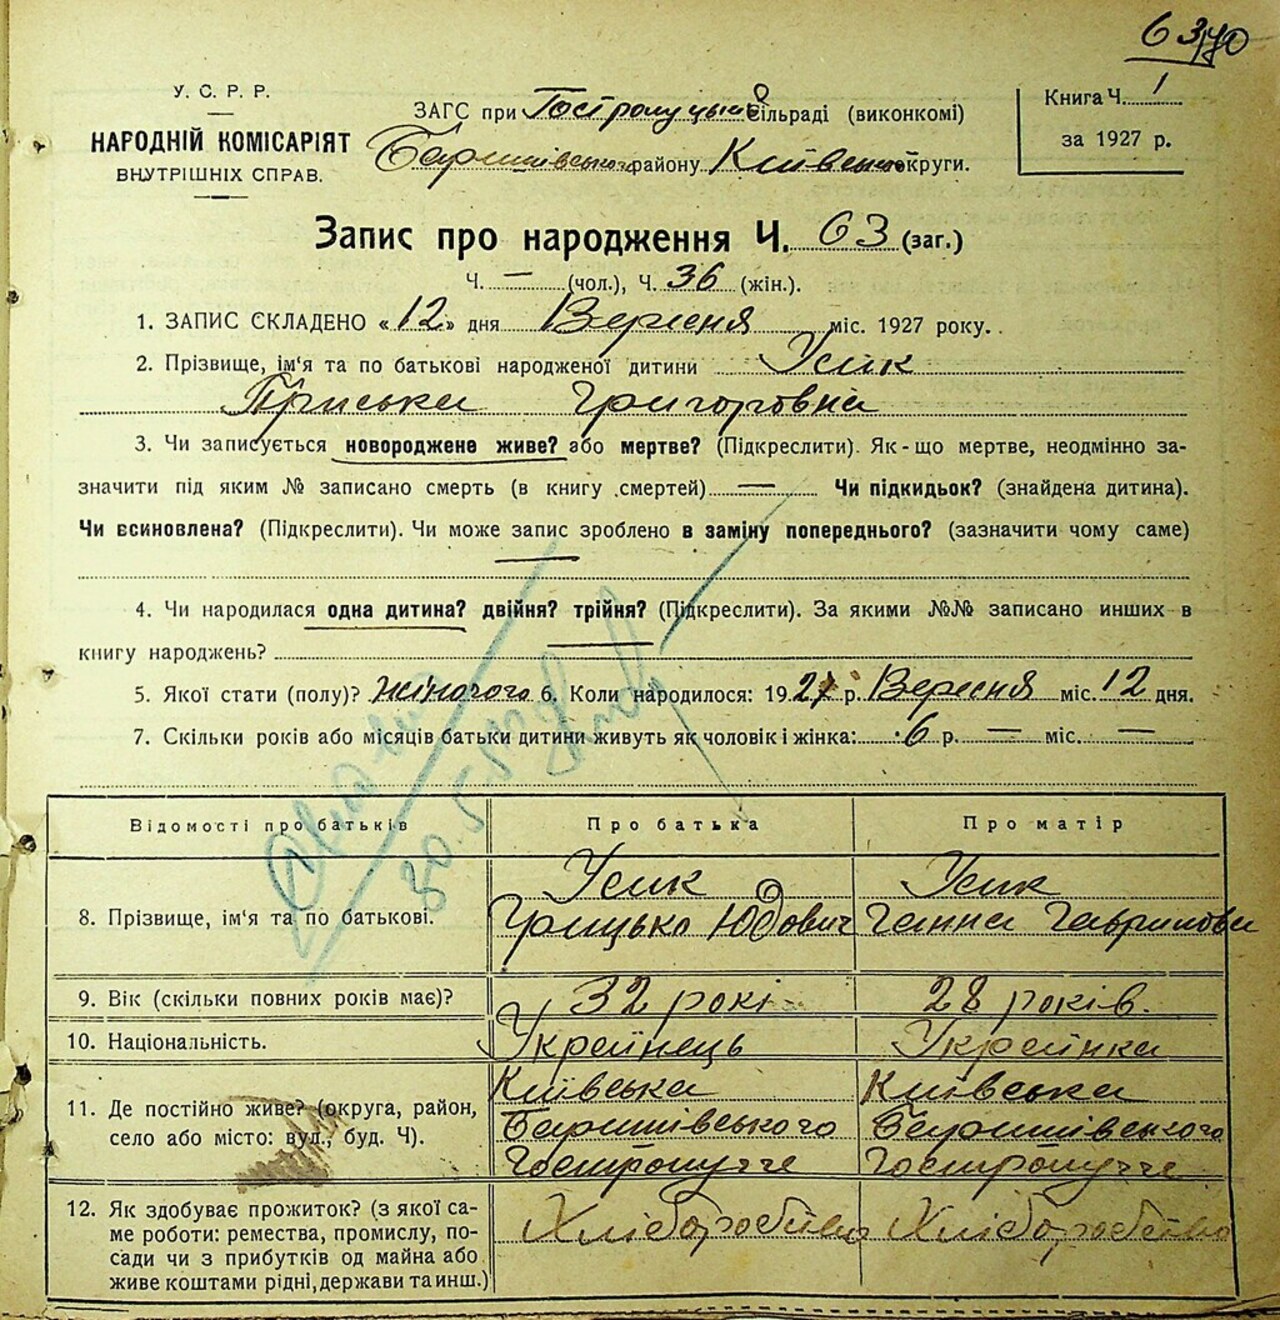 63
У. С. Р. Р.
НАРОДНІЙ КОМІСАРІЯТ
ВНУТРІШНІХ СПРАВ.
ЗАГС при Гостролуцькій сільраді (виконкомі)
Баришівського району Київської округи.
Книга Ч. 1
за 1927 р.
Запис про народження Ч. 63 (заг.)
Ч. — (чол.), Ч. 36 (жін.).
1. ЗАПИС ЄКЛАДЕНО «12» дня Вересня міс. 1927 року.
2. Прізвище, ім'я та по батькові народженої дитини Усик
Приська Григоровна
3. Чи записується новороджене живе? або мертве? (Підкреслити). Як-що мертве, неодмінно за-
значити під яким № записано смерть (в книгу смертей) — Чи підкидьок? (знайдена дитина).
Чи єсиновлена? (Підкреслити). Чи може запис зроблено в заміну попереднього? (зазначити чому саме)
—
4. Чи народилася одна дитина? двійня? трійня? (Підкреслити). За якими №№ записано инших в
книгу народжень?
5. Якої стати (полу)? жіночого 6. Коли народилося: 1927 р. Вересня міс. 12 дня.
7. Скільки років або місяців батьки дитини живуть як чоловік і жінка: 6 р. — міс. —
Відомості про батьків Про батька Про матір
8. Прізвище, ім'я та по батькові. Усик Усик
Грицько Юдович Ганна Гаврилова
9. Вік (скільки повних років має)? 32 рокі 28 років.
10. Національність. Украінець Украінка
11. Де постійно живе? (округа, район, село або місто: вул., буд. Ч). Київська Київська
Баришівського Баришівського
Гостролучче Гостролучче
12. Як здобуває прожиток? (з якої са- Хліборобство Хліборобство
ме роботи: ремества, промислу, по-
сади чи з прибутків од майна або
живе коштами рідні, держави та инш.)